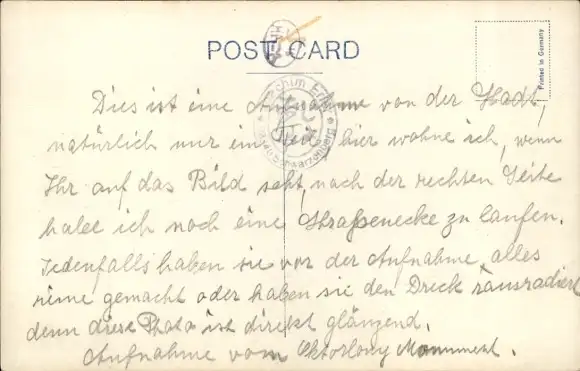 POST CARD
Printed in Germany
Dies ist eine Aufnahme von der Stadt,
natürlich nur ein Teil, hier wohne ich, wenn
Ihr auf das Bild seht, nach der rechten Seite
habe ich noch eine Straßenecke zu laufen.
Jedenfalls haben sie vor der Aufnahme alles
reine gemacht oder haben sie den Dreck rausradiert
denn diese Photo ist direkt glänzend.
Aufnahme vom Monument.